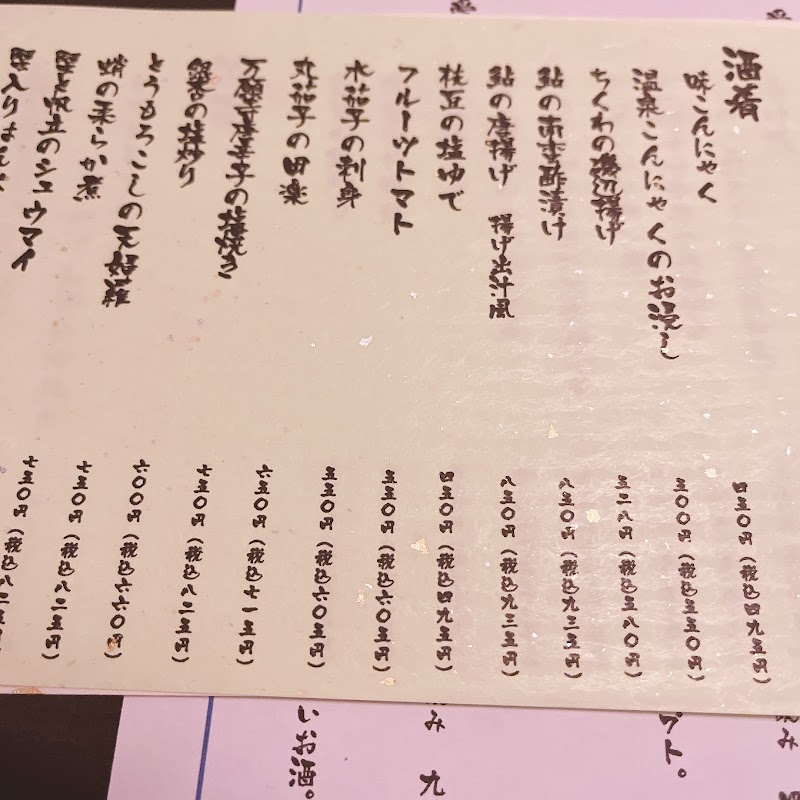 酒肴
味こんにゃく 四五〇円(税込四九五円)
温泉こんにゃくのお浸し 五〇〇円(税込五五〇円)
ちくわの磯辺揚げ 五二八円(税込五八〇円)
鮎の南蛮酢漬け 八五〇円(税込九三五円)
鮎の唐揚げ 揚げ出汁風 八五〇円(税込九三五円)
枝豆の塩ゆで 四五〇円(税込四九五円)
フルーツトマト 五五〇円(税込六〇五円)
水茄子の刺身 五五〇円(税込六〇五円)
丸茄子の田楽 六五〇円(税込七一五円)
万願寺唐辛子の塩焼き 七五〇円(税込八二五円)
銀杏の塩炒り 六〇〇円(税込六六〇円)
とうもろこしの天婦羅 七五〇円(税込八二五円)
蛸の柔らか煮 七五〇円(税込八二五円)
蟹と帆立のシュウマイ
プト。
み 九
いお酒。